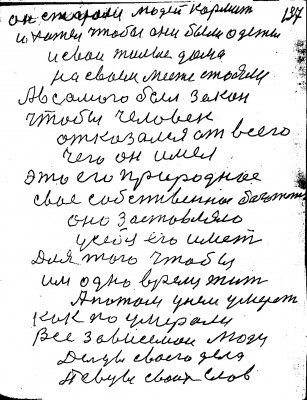 он старали людей кормит 137
и хотел чтобы они были одеты
и свои жилые дома
на своем месте стояли
А в самого был закон
чтобы человек
отказался от всего
чего он имел
это его природное
свое собственное богатств
оно заставляло
у себя его имет
Для того чтобы
им одно время жит
А потом у нем умереть
как по умерали
Все зависемои люду
Делце своего дела
Певце своих слов